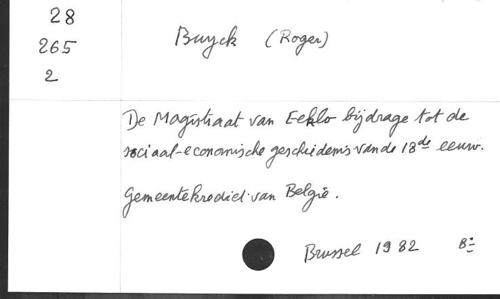 28
265
2
Buyck (Roger)
De Magistraat van Eeklo bijdrage tot de
sociaal-economische geschiedenis van de 18de eeuw.
Gemeentekrediet van België.
Brussel 1982 8=